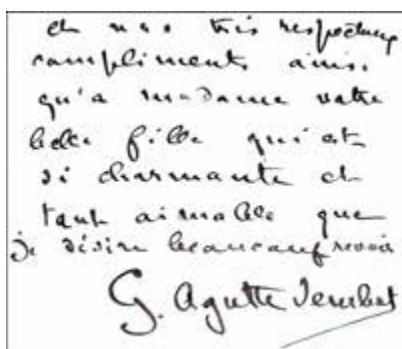 et nos très respectueux
compliments ainsi
qu'a madame votre
belle fille qui est
si charmante et
tant aimable que
je désire beaucoup revoir
G. Agutte Sembat